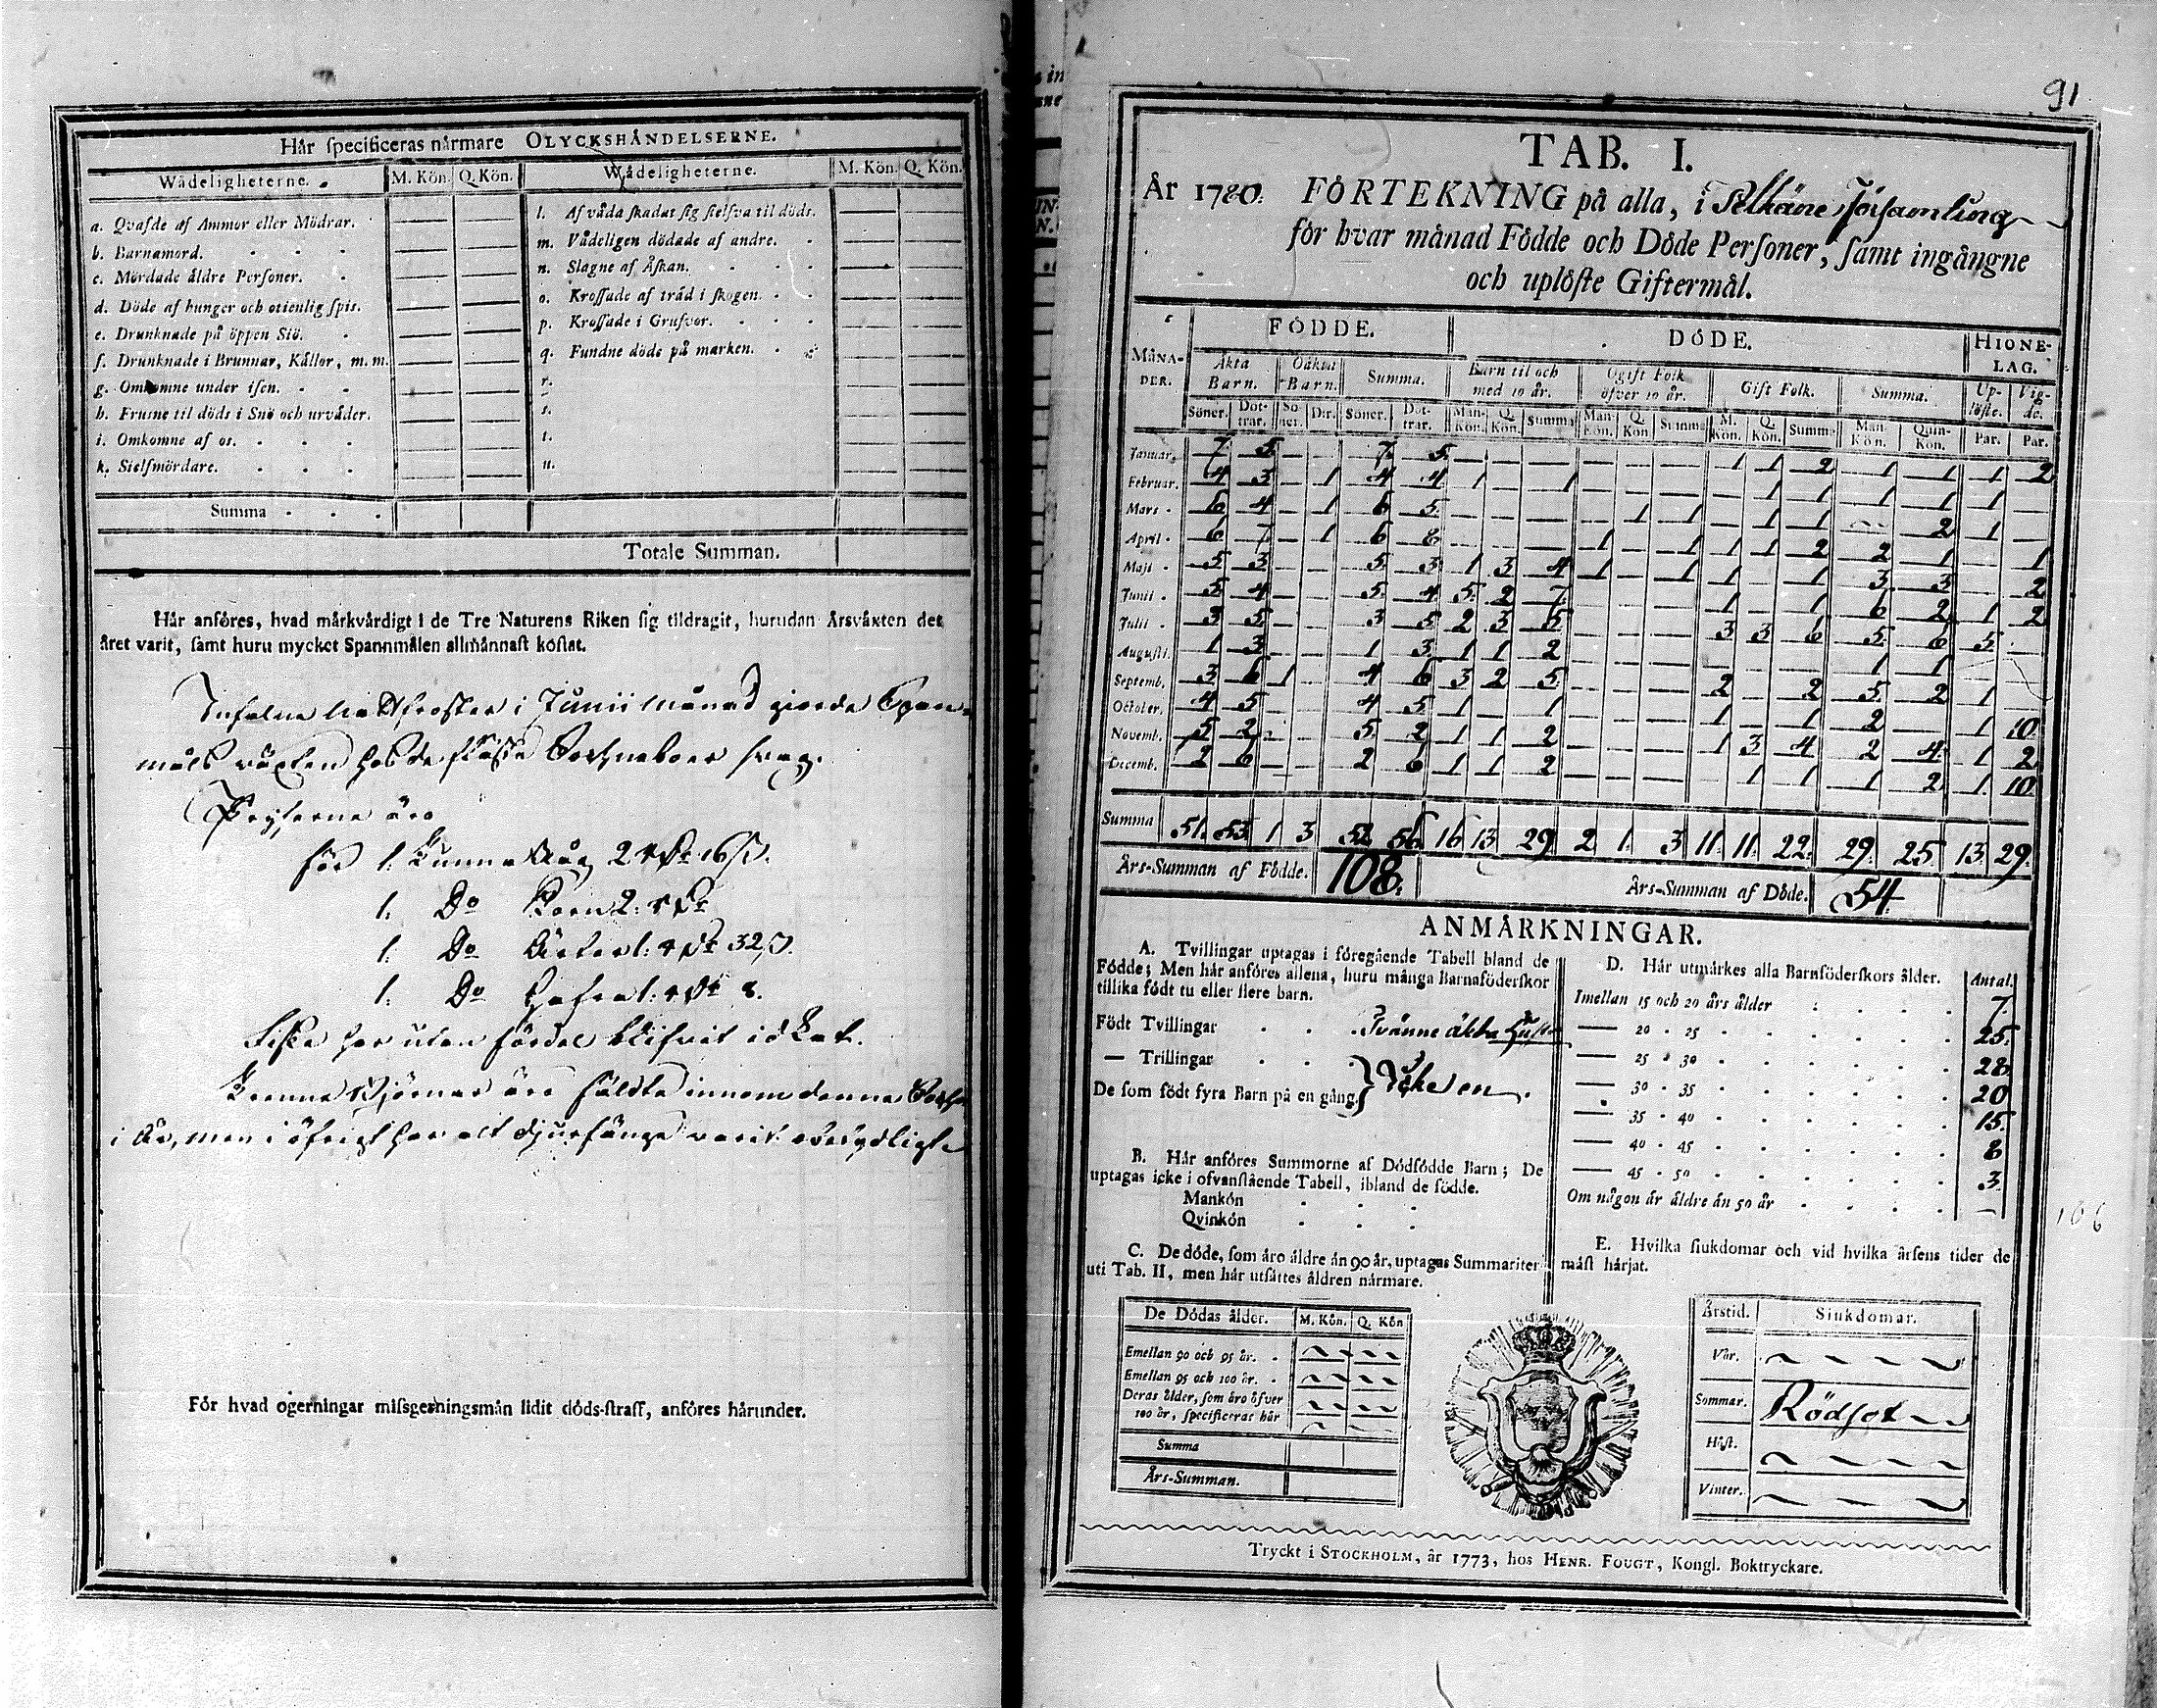 Hår specificeras nårmare OLYCKSHÅNDELSERNE.
Wådeligheterne. M. Kön. Q. Kön. Wådeligheterne. M. Kön. Q. Kön.
a. Qvafde af Ammor eller Mödrar. — — l. Af våda skadat sig sielfva til döds. — —
b. Barnamord. — — m. Vådeligen dödade af andre. — —
c. Mördade åldre Personer. — — n. Slagne af Åskan. — —
d. Döde af hunger och otienlig spis. — — o. Krossade af tråd i skogen. — —
e. Drunknade på öppen Siö. — — p. Krossade i Grufvor. — —
f. Drunknade i Brunnar, Kållor, m. m. — — q. Fundne döde på marken. — —
g. Omkomne under isen. — — r.
h. Frusne til döds i Snö och urvåder. — — s.
i. Omkomne af os. — — t.
k. Sielfmördare. — — u.
Summa
Totale Summan.
Hår anföres, hvad mårkvårdigt i de Tre Naturens Riken sig tildragit, hurudan Årsvåxten det
året varit, samt huru mycket Spannmålen allmånnast kostat.
Infalne nattfroster i Junii månad giorde Span-
måls växten hos de flästa Sochneboer svag.
Pryserne äro
för 1. Tunna Råg 2 16
1. Do Korn 2:
1. Do Ärter 1: 32
1. Do Hafra 1: 8.
Fiske har utan fördel blifvit idkat.
Tvenne Björnar äro fälldte innom denna
i År, men i öfrigt har alt djurfänge varit obetydligt
För hvad ogerningar missgerningsmån lidit döds-straff, anföres hårunder.
91
TAB. I.
År 1780. FÖRTEKNING på alla, i Pelkäne Församling
för hvar månad Födde och Döde Personer, samt ingångne
och uplöste Giftermål.
MÅNADER. FÖDDE. DÖDE. HIONELAG.
Åkta Barn. Oåkta Barn. Summa. Barn til och med 10 år. Ogift Folk öfver 10 år. Gift Folk. Summa. Uplöste. Vigde.
Söner. Dottrar. Söner. Dtr. Söner. Dottrar. Mankön. Q. Kön. Summa Mankön. Q. Kön Summa M. Kön. Q. Kön. Summa Mankön. Quinkön. Par. Par.
Januar. 7 5 — — 7 5 — — — — — — 1 1 2 1 1 1 2
Februar. 4 3 — 1 4 4 1 — 1 — — — — 1 1 1 1 1 —
Mars 6 4 — 1 6 5 — — — — 1 1 — 1 1 — 2 1 —
April 6 7 — 1 6 8 — — — 1 — 1 1 1 2 2 1 — 1
Maji 5 3 — — 5 3 1 3 4 1 — 1 1 — 1 3 3 — 2
Junii 5 4 — — 5 4 5 2 7 — — — 1 — 1 6 2 1 2
Julii 3 5 — — 3 5 2 3 5 — — — 3 3 6 5 6 5 —
Augusti. 1 3 — — 1 3 1 1 2 — — — — — — 1 1 — —
Septemb. 3 6 1 — 4 6 3 2 5 — — — 2 — 2 5 2 1 —
October. 4 5 — — 4 5 1 — 1 — — — 1 — 1 2 — 1 10
Novemb. 5 2 — — 5 2 1 1 2 — — — 1 3 4 2 4 1 2
Decemb. 2 6 — — 2 6 1 1 2 — — — — 1 1 1 2 1 10
Summa 51. 53. 1 3 52 56 16 13 29 2 1. 3 11 11. 22. 29. 25. 13. 29.
Års-Summan af Födde. 108. Års-Summan af Döde. 54.
ANMÅRKNINGAR.
A. Tvillingar uptagas i föregående Tabell bland de
Födde; Men hår anföres allena, huru många Barnaföderskor
tillika födt tu eller flere barn.
Födt Tvillingar Tvänne äkta
— Trillingar
De som födt fyra Barn på en gång. } Icke en.
B. Hår anföres Summorne af Dödfödde Barn; De
uptagas icke i ofvanstående Tabell, ibland de födde.
Mankön
Qvinkön
C. De döde, som åro åldre ån 90 år, uptagas Summariter
uti Tab. II, men hår utsåttes åldren nårmare.
De Dödas ålder. M. Kön. Q. Kön
Emellan 90 och 95 år.
Emellan 95 och 100 år.
Deras ålder, som åro öfver
100 år, specificeras hår
Summa
Års-Summan.
D. Hår utmårkes alla Barnföderskors ålder. Antal.
Imellan 15 och 20 års ålder 7.
— 20 - 25 25.
— 25 - 30 28
— 30 - 35 20
— 35 - 40 15.
— 40 - 45 8
— 45 - 50 3.
Om någon år åldre ån 50 år —
106
E. Hvilka siukdomar och vid hvilka årsens tider de
måst hårjat.
Årstid. Siukdomar.
Vår.
Sommar. Rödsot
Höst.
Vinter.
Tryckt i STOCKHOLM, år 1773, hos HENR. FOUGT, Kongl. Boktryckare.